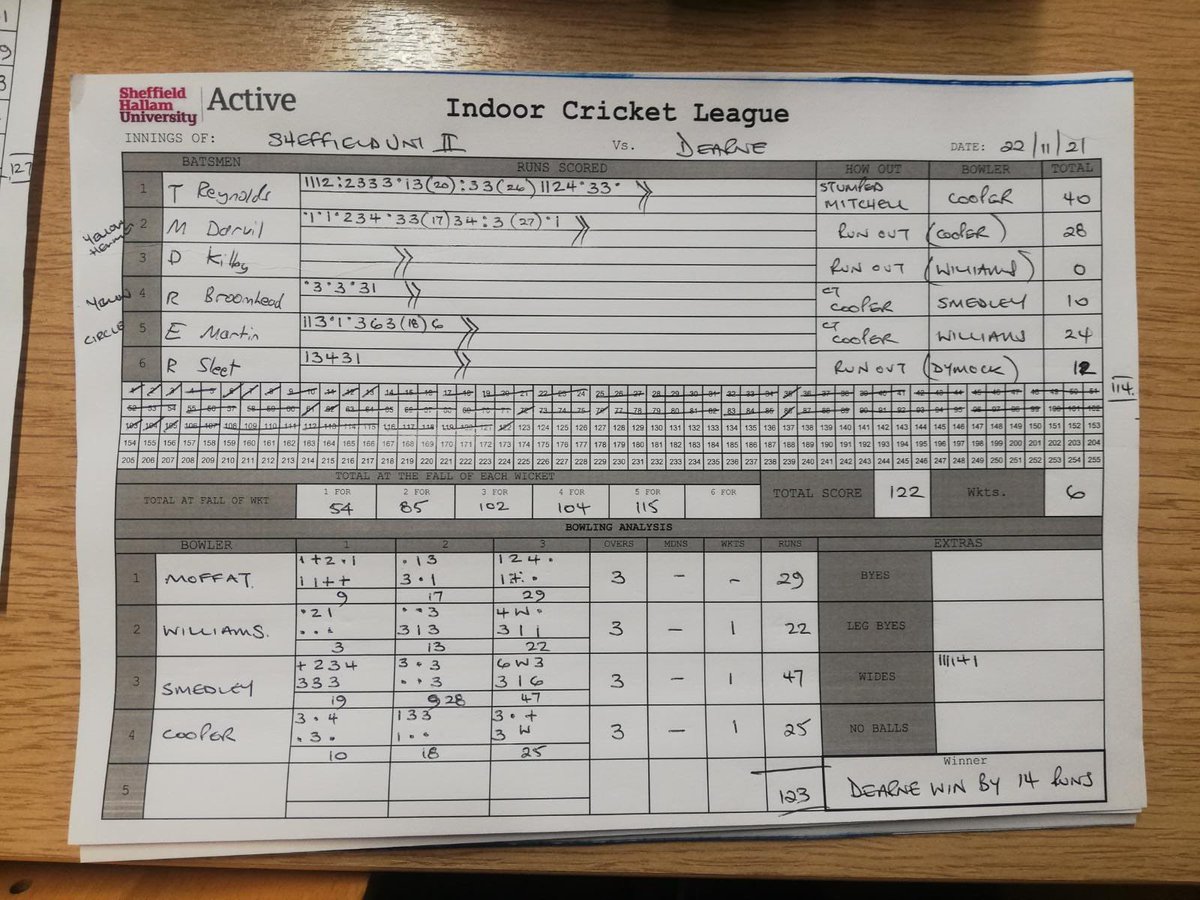 Sheffield Hallam University Active
Indoor Cricket League
INNINGS OF: SHEFFIELD UNI II Vs. DEARNE DATE: 22/11/21
BATSMEN RUNS SCORED HOW OUT BOWLER TOTAL
1 T Reynolds 1112:2333·13(20):33(26)1124·33· STUMPED MITCHELL COOPER 40
2 M Darvil ·1·1·234·33(17)34:3(27)·1 RUN OUT (COOPER) 28
3 D Kilby RUN OUT (WILLIAMS) 0
4 R Broomhead ·3·3·31 CT COOPER SMEDLEY 10
5 E Martin 113·1·363(18)6 CT COOPER WILLIAMS 24
6 R Sleet 13431 RUN OUT (DYMOCK) 12
CIRCLE
127
114.
1 2 3 4 5 6 7 8 9 10 11 12 13 14 15 16 17 18 19 20 21 22 23 24 25 26 27 28 29 30 31 32 33 34 35 36 37 38 39 40 41 42 43 44 45 46 47 48 49 50 51
52 53 54 55 56 57 58 59 60 61 62 63 64 65 66 67 68 69 70 71 72 73 74 75 76 77 78 79 80 81 82 83 84 85 86 87 88 89 90 91 92 93 94 95 96 97 98 99 100 101 102
103 104 105 106 107 108 109 110 111 112 113 114 115 116 117 118 119 120 121 122 123 124 125 126 127 128 129 130 131 132 133 134 135 136 137 138 139 140 141 142 143 144 145 146 147 148 149 150 151 152 153
154 155 156 157 158 159 160 161 162 163 164 165 166 167 168 169 170 171 172 173 174 175 176 177 178 179 180 181 182 183 184 185 186 187 188 189 190 191 192 193 194 195 196 197 198 199 200 201 202 203 204
205 206 207 208 209 210 211 212 213 214 215 216 217 218 219 220 221 222 223 224 225 226 227 228 229 230 231 232 233 234 235 236 237 238 239 240 241 242 243 244 245 246 247 248 249 250 251 252 253 254 255
TOTAL AT THE FALL OF EACH WICKET
TOTAL AT FALL OF WKT 1 FOR 2 FOR 3 FOR 4 FOR 5 FOR 6 FOR TOTAL SCORE 122 Wkts. 6
54 85 102 104 115
BOWLING ANALYSIS
BOWLER 1 2 3 OVERS MDNS WKTS RUNS EXTRAS
1 MOFFAT. 3 - - 29 BYES
1+2·1 ·13 124·
11++ 3·1
9 17 29
2 WILLIAMS. 3 - 1 22 LEG BYES
·21 ··3 4W·
··· 313 311
3 13 22
3 SMEDLEY 3 - 1 47 WIDES 111+1
+234 3·3 6W3
333 ··3 316
19 28 47
4 COOPER 3 - 1 25 NO BALLS
3·4 133 3·+
·3· 1·· 3 W
10 18 25
5 123
Winner
DEARNE WIN BY 14 RUNS